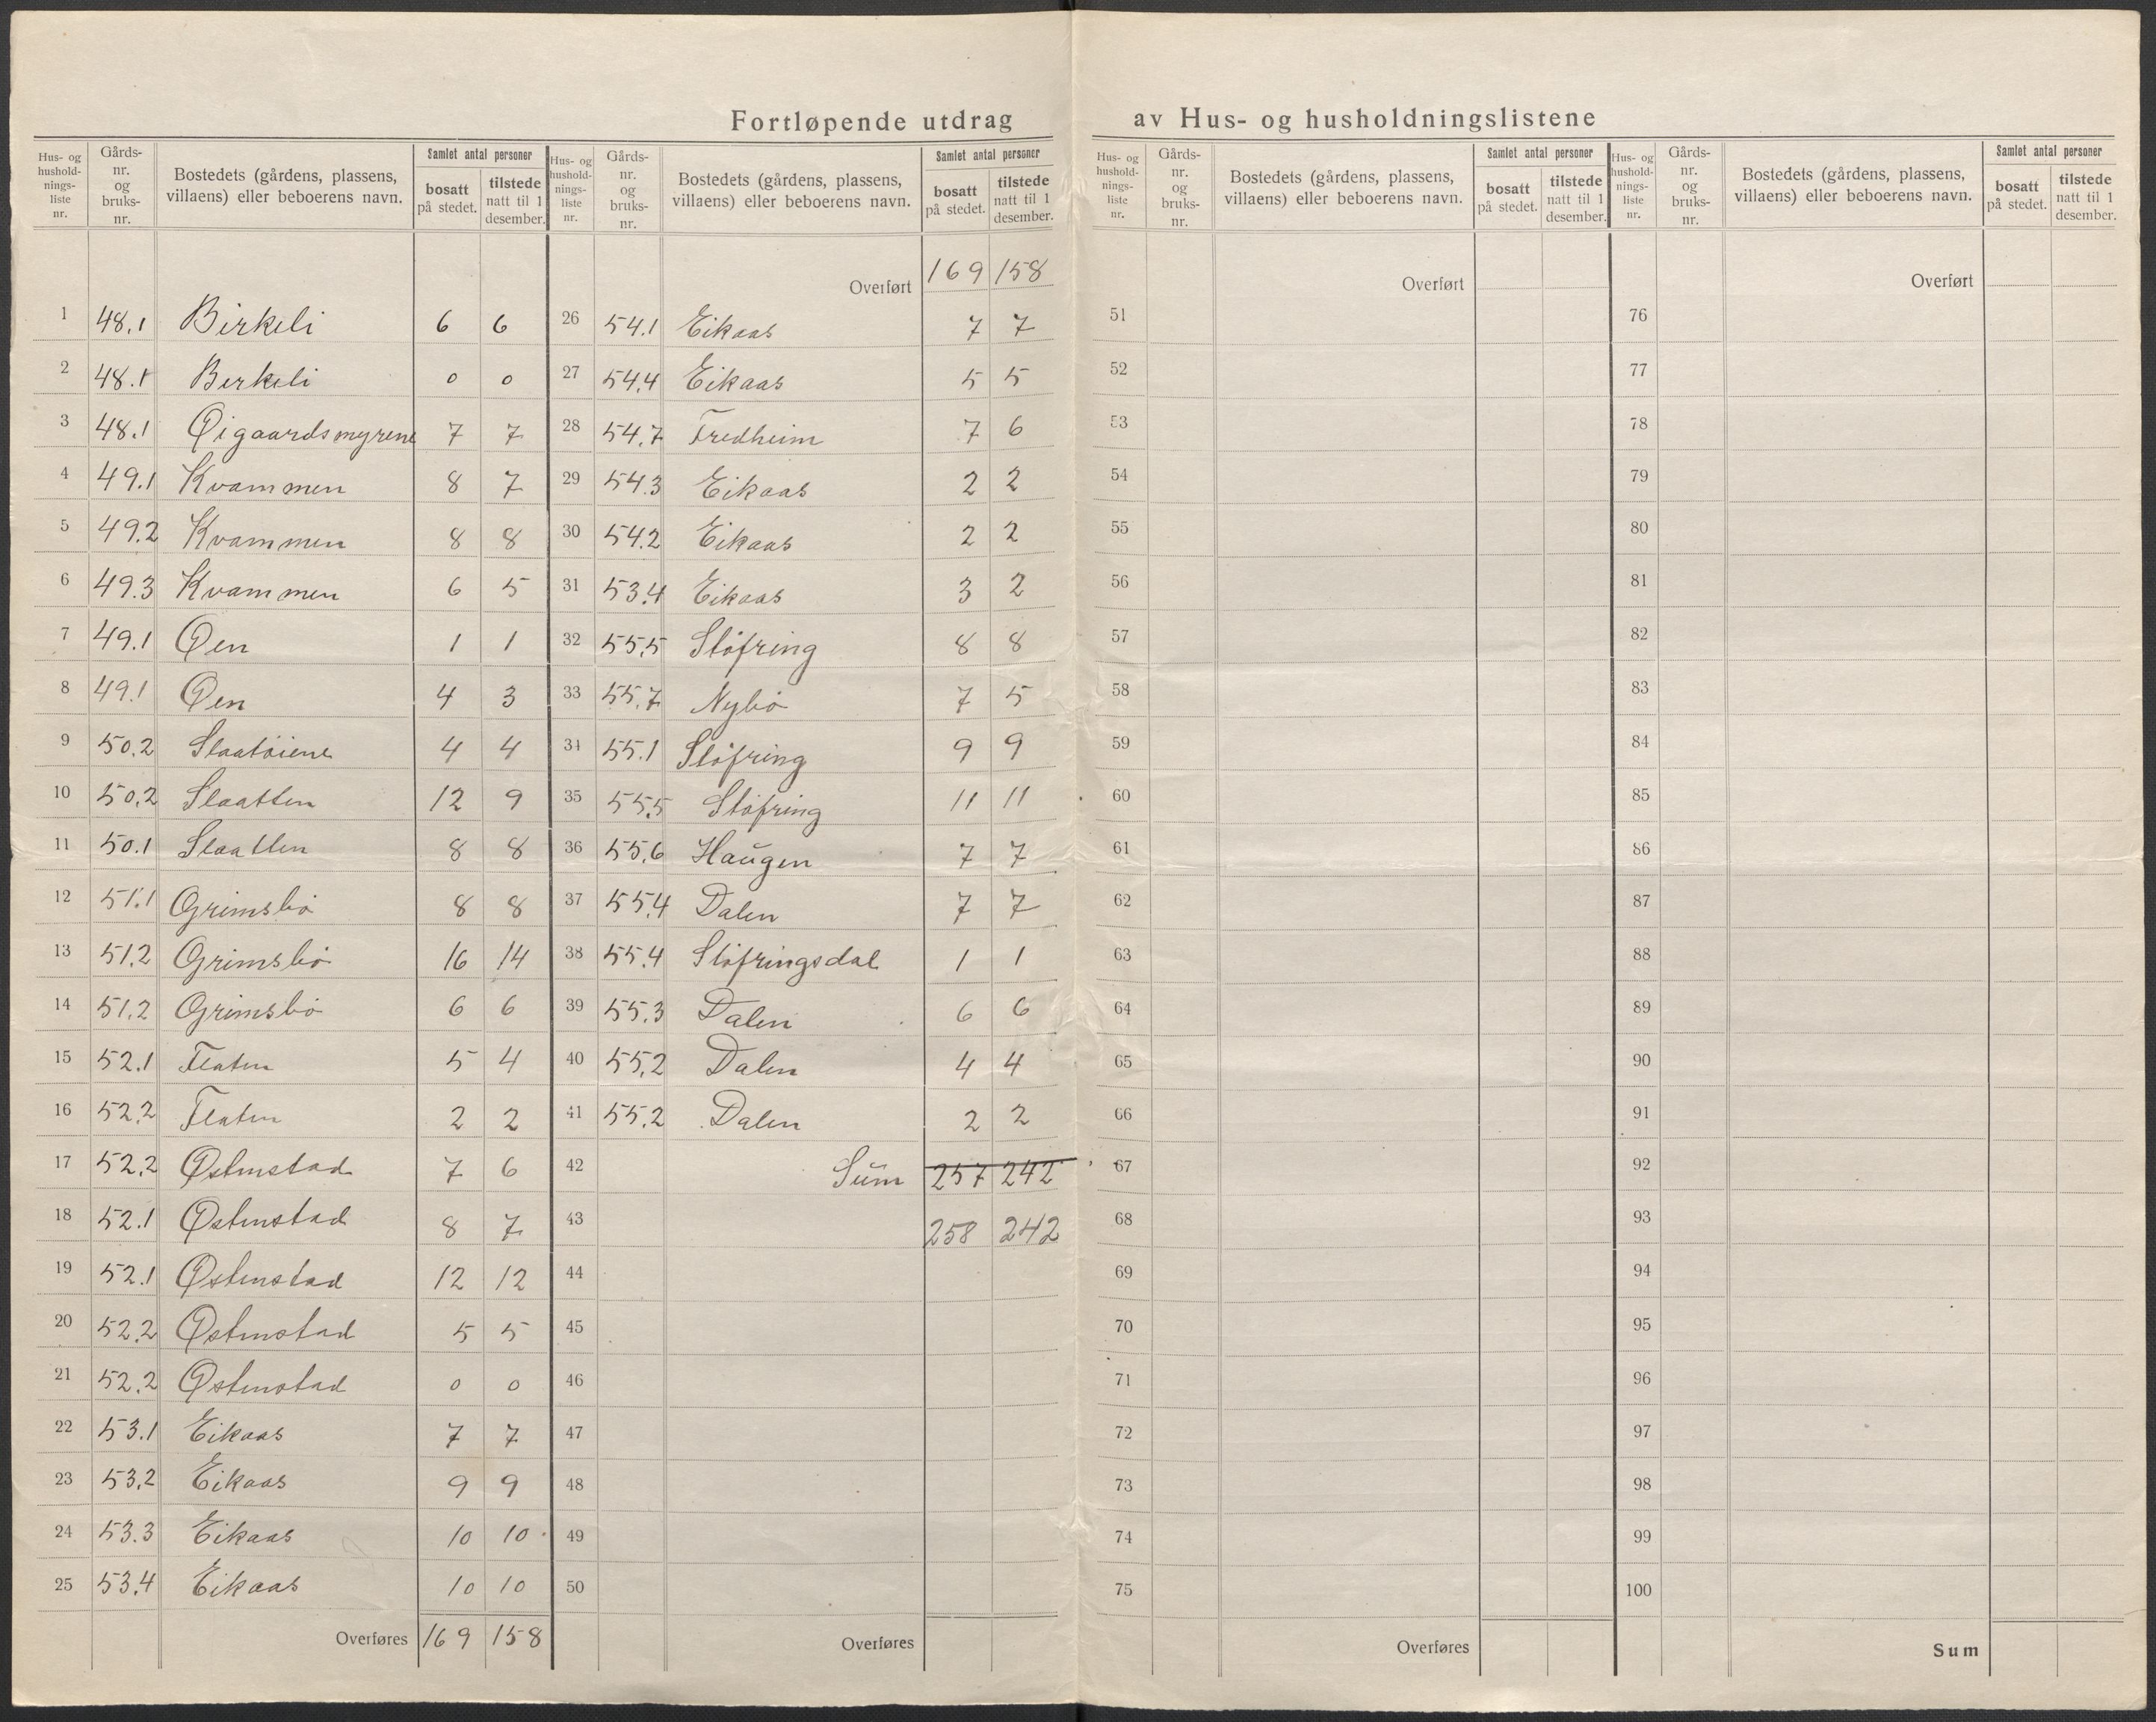 Fortløpende utdrag av Hus- og husholdningslistene
Hus- og husholdningsliste nr. | Gårds-nr. og bruks-nr. | Bostedets (gårdens, plassens, villaens) eller beboerens navn. | Samlet antal personer | bosatt på stedet. | tilstede natt til 1 desember.
1 48.1 Birkeli 6 6
2 48.1 Birkeli 0 0
3 48.1 Øigaardsmyrene 7 7
4 49.1 Kvammen 8 7
5 49.2 Kvammen 8 8
6 49.3 Kvammen 6 5
7 49.1 Øen 1 1
8 49.1 Øen 4 3
9 50.2 Slaatöiene 4 4
10 50.2 Slaatten 12 9
11 50.1 Slaatten 8 8
12 51.1 Grimsbö 8 8
13 51.2 Grimsbö 16 14
14 51.2 Grimsbö 6 6
15 52.1 Flaten 5 4
16 52.2 Flaten 2 2
17 52.2 Østenstad 7 6
18 52.1 Østenstad 8 7
19 52.1 Østenstad 12 12
20 52.2 Østenstad 5 5
21 52.2 Østenstad 0 0
22 53.1 Eikaas 7 7
23 53.2 Eikaas 9 9
24 53.3 Eikaas 10 10
25 53.4 Eikaas 10 10
Overføres 169 158
Hus- og husholdningsliste nr. | Gårds-nr. og bruks-nr. | Bostedets (gårdens, plassens, villaens) eller beboerens navn. | Samlet antal personer | bosatt på stedet. | tilstede natt til 1 desember.
Overført 169 158
26 54.1 Eikaas 7 7
27 54.4 Eikaas 5 5
28 54.7 Fredheim 7 6
29 54.3 Eikaas 2 2
30 54.2 Eikaas 2 2
31 53.4 Eikaas 3 2
32 55.5 Stöfring 8 8
33 55.7 Nybö 7 5
34 55.1 Stöfring 9 9
35 55.5 Stöfring 11 11
36 55.6 Haugen 7 7
37 55.4 Dalen 7 7
38 55.4 Stöfringsdal 1 1
39 55.3 Dalen 6 6
40 55.2 Dalen 4 4
41 55.2 Dalen 2 2
42 Sum 257 242
43 258 242
44
45
46
47
48
49
50
Overføres
Hus- og husholdningsliste nr. | Gårds-nr. og bruks-nr. | Bostedets (gårdens, plassens, villaens) eller beboerens navn. | Samlet antal personer | bosatt på stedet. | tilstede natt til 1 desember.
Overført
51
52
53
54
55
56
57
58
59
60
61
62
63
64
65
66
67
68
69
70
71
72
73
74
75
Overføres
Hus- og husholdningsliste nr. | Gårds-nr. og bruks-nr. | Bostedets (gårdens, plassens, villaens) eller beboerens navn. | Samlet antal personer | bosatt på stedet. | tilstede natt til 1 desember.
Overført
76
77
78
79
80
81
82
83
84
85
86
87
88
89
90
91
92
93
94
95
96
97
98
99
100
Sum